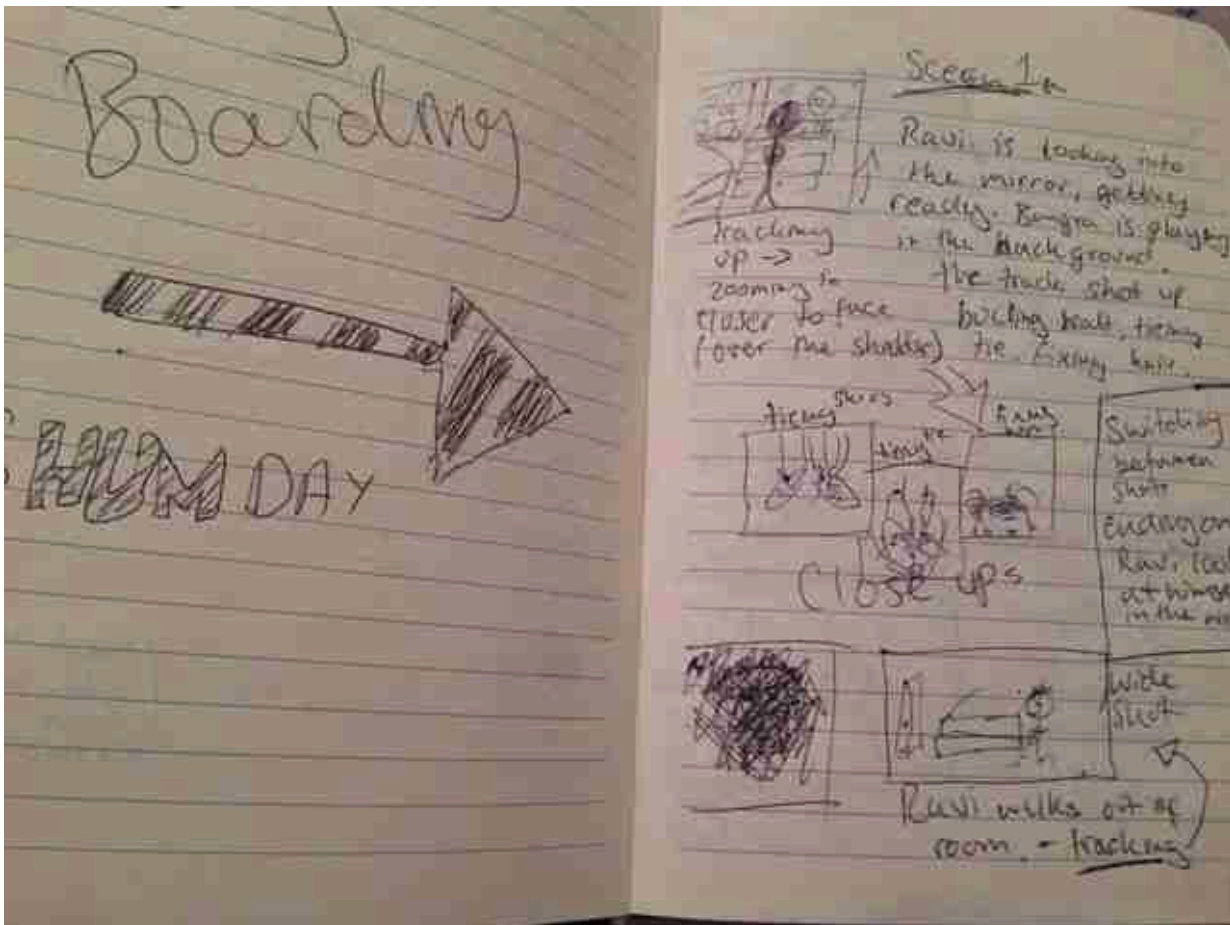 Boarding
HUM DAY
Scean 1
Ravi is looking into
the mirror, getting
ready. Bangra is playing
in the background.
the track shot up
tieing
tie. fixing hair.
tracking
up ->
zooming in
closer to face
(over the shoulder)
tieing shoes
tieing tie
fixing hair
Close ups
Switching
between
shots
ending on
Ravi
at
in the
wide
shot
Ravi walks out of
room. - tracking